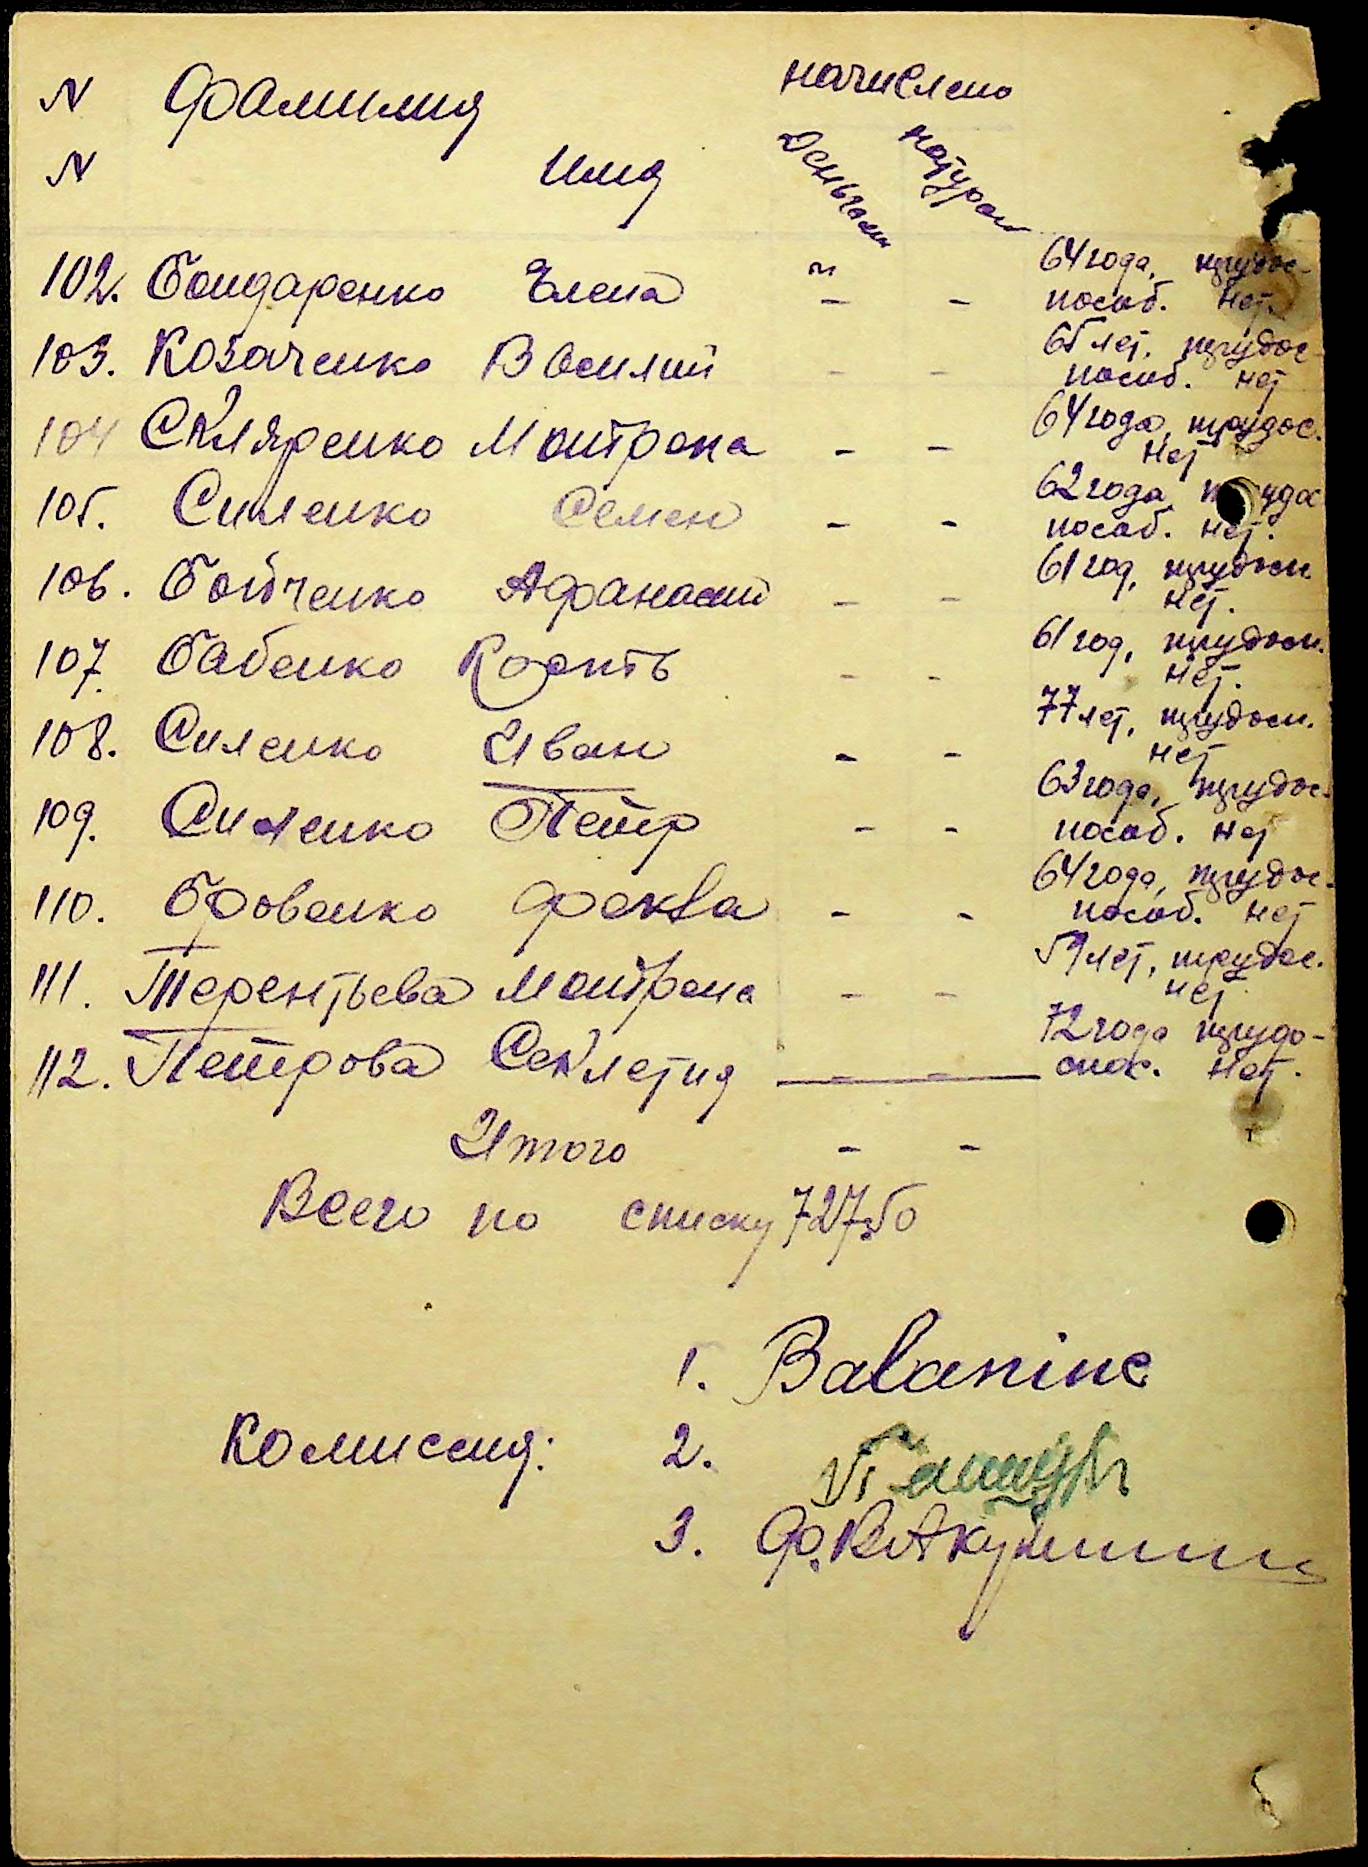 N Фамилия начислено
N Имя деньгами натурой
102. Бондаренко Елена " - - 64 года, трудос-
пособ. нет.
103. Козаченко Василий - - 65 лет, трудос-
пособ. нет
104 Скляренко Мотрона - - 64 года, трудос.
нет
105. Силенко Семен - - 62 года, трудос
пособ. нет.
106. Бойченко Афанасий - - 61 год, трудосп
нет.
107. Бабенко - - 61 год, трудосп.
нет.
108. Силенко Иван - - 77 лет, трудосп.
нет
109. Силенко Петр - - 63 года, трудос-
пособ. нет
110. Бровенко Фекла - - 64 года, трудос-
пособ. нет
111. Терентьева Мотрона - - 59 лет, трудос.
нет
112. Петрова Секлетия - - 72 года трудо-
спос. нет.
Итого - -
Всего по списку 727.50
1. Balanine
Комиссия: 2.
3.